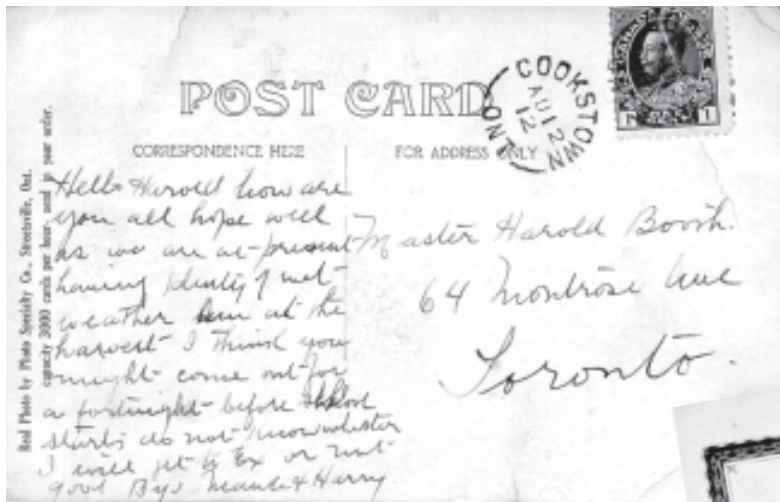 POST CARD
CORRESPONDENCE HERE
FOR ADDRESS ONLY
COOKSTOWN
AU 12
12
ONT
1 1
Real Photo by Photo Specialty Co., Streetsville, Ont.
capacity 3000 cards per hour, send in your order.
Hello Harold how are
you all hope well
as we are at present
having plenty of wet
weather at the
harvest I think you
might come out for
a fortnight before School
starts do not know whether
I will get to Ex or not
good Bye & Harry
Master Harold Booth.
64 Montrose Ave
Toronto.